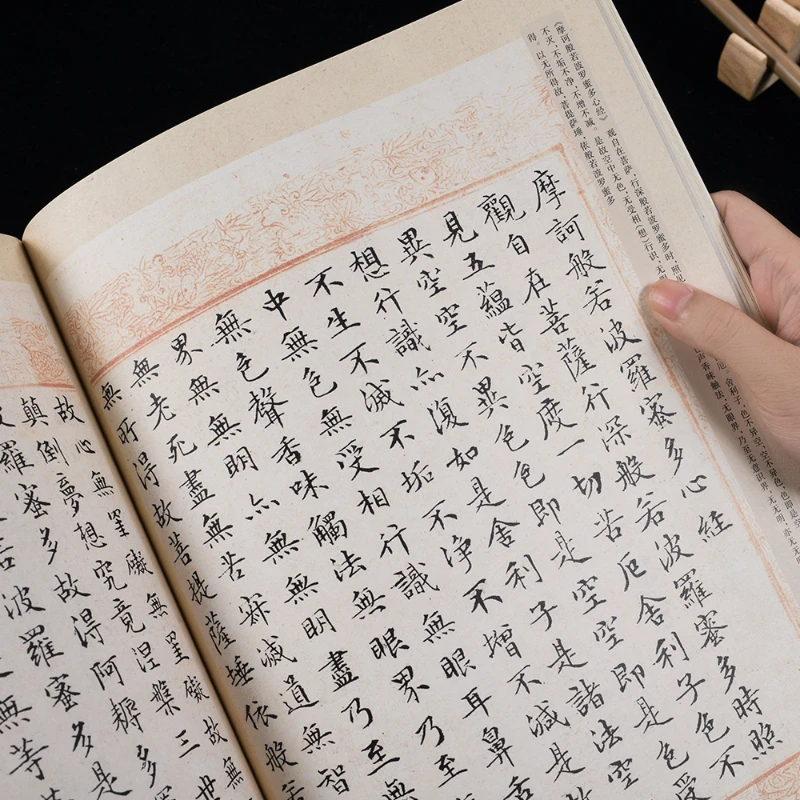 《摩诃般若波罗蜜多心经》 观自在菩萨,行深般若波罗蜜多时,照见
舍利子,色不异空,空不异色,色即是空
不灭,不垢不净,不增不减。是故空中无色,无受相(想)行识,无
声香味触法,无眼界,乃至无意识界,无无明,亦无无
得。以无所得故,菩提萨埵,依般若波罗蜜多
摩訶般若波羅蜜多心經
觀自在菩薩行深般若波羅蜜多時照
見五蘊皆空度一切苦厄舍利子色不
異空空不異色色即是空空即是色受
想行識亦復如是舍利子是諸法空
不生不滅不垢不淨不增不減是故
中無色無受相行識無眼耳鼻舌
無色聲香味觸法無眼界乃至無
界無無明亦無無明盡乃至
無老死盡無苦寂滅道無智
無所得故菩提薩埵依般若
故心無罣礙無罣礙故無
顛倒夢想究竟涅槃三世
羅蜜多故得阿耨多
波羅蜜多是
無等